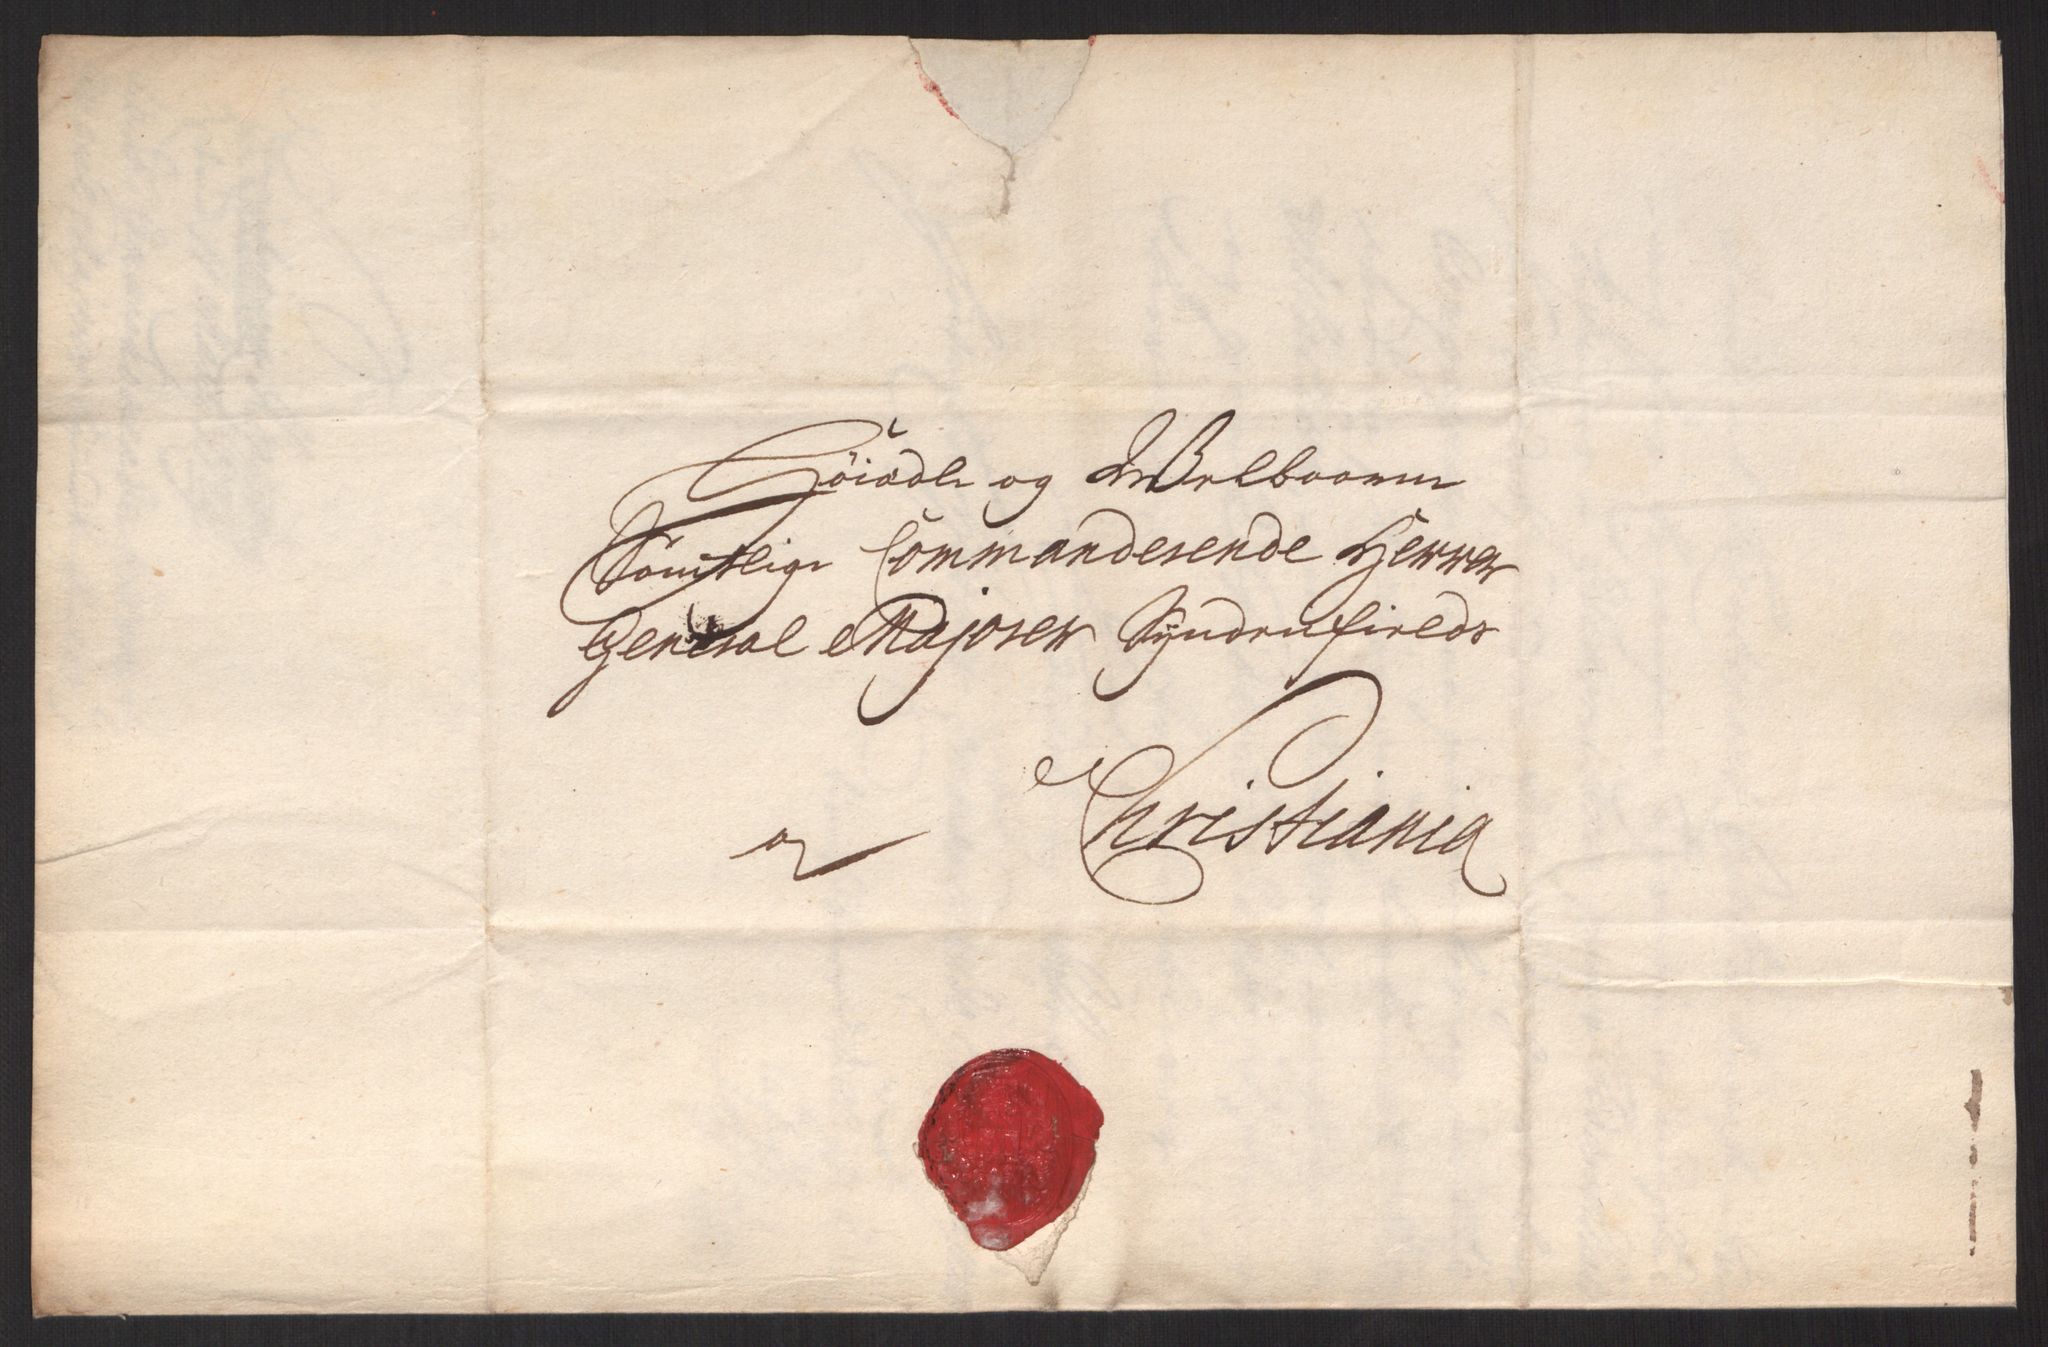 Höiædle og Welbaarne
Samtlige Commanderende Herrer
General Majorer Syndenfields
a Christiania